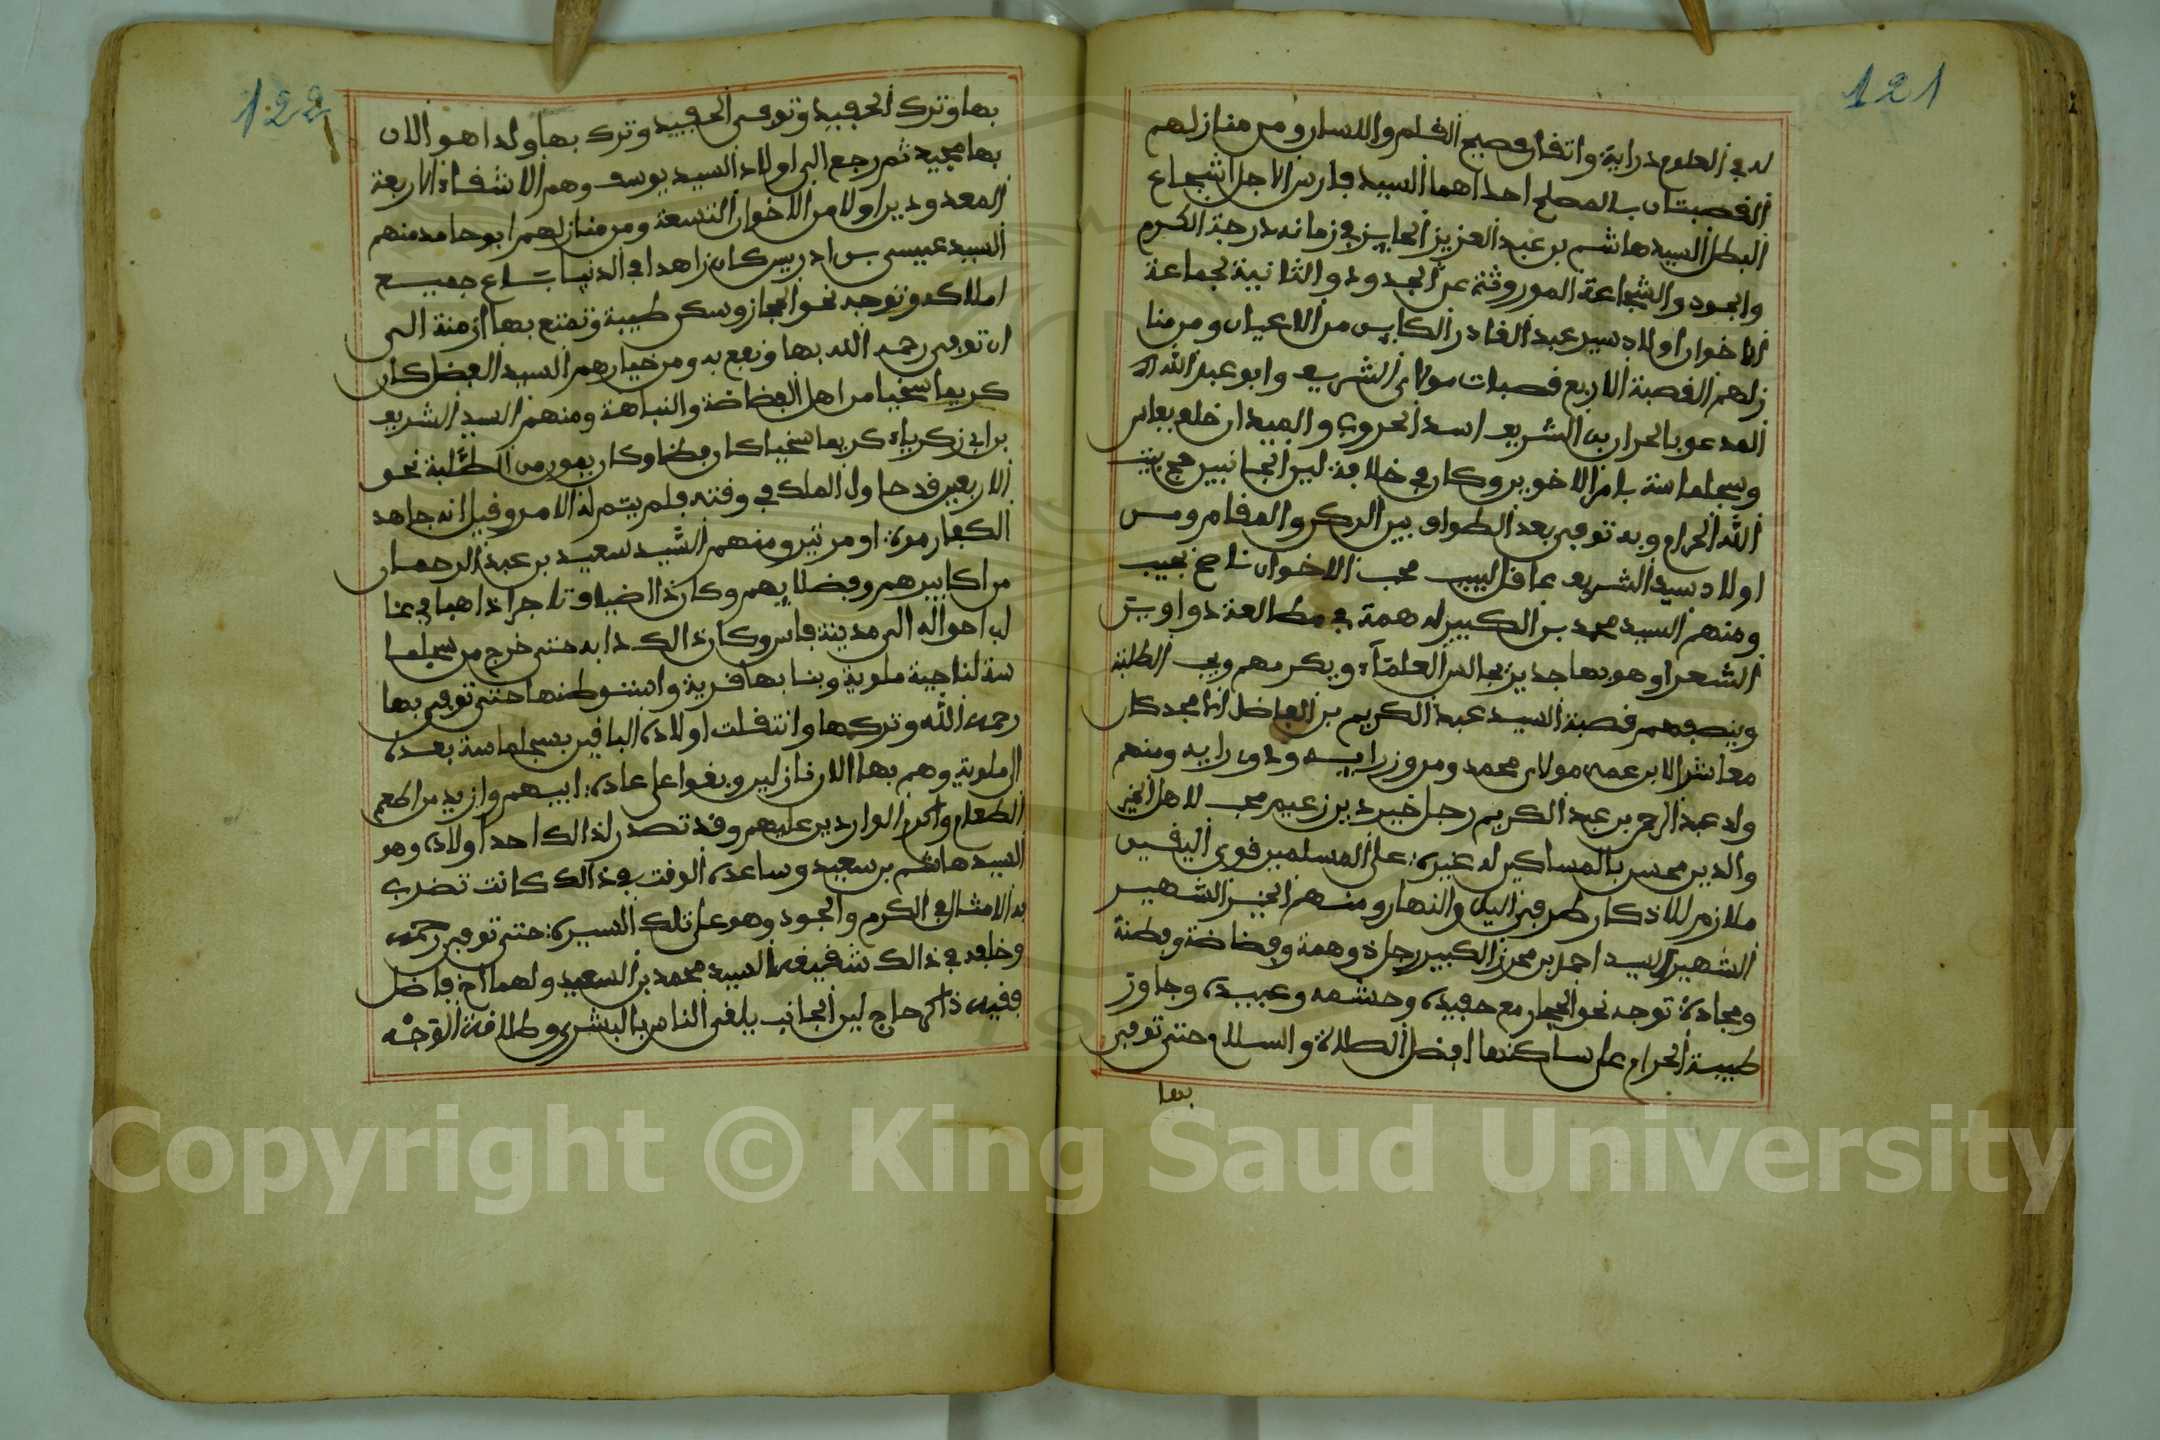 121
له في العلوم دراية واتقان فصيح القلم واللسان ومن منازلهم
القصبتان بالمصلح احداهما السيد فارس الاجل اشجاع
البطل السيد هاشم بن عبد العزيز الحايز في زمانه درجة الكرم
والجود والشجاعة الموروثة عن الجدود والثانية لجماعة
الاخوان اولاد سيد عبد القادر الكايس من الاعيان ومن منا
زلهم القصبة الاربع قصبات مولاي الشريف وابو عبد الله
المدعو بالحران بن الشريف اسد الحروب والميدان خلع بفاس
وسجلماسة بامر الاخوين وكان في خلافة لين الجانبين حج بيت
الله الحرام وبه توفي بعد الطواف بين الركن والمقام ومن
اولاد سيد الشريف عاقل لبيب محب الاخوان ناصح نجيب
ومنهم السيد محمد بن الكبير له همة في مطالعة دواوين
الشعرا وهو بها جدير يجالس العلمآء ويكرمهم ويحب الطلبة
وينصفهم قصبة السيد عبد الكريم بن الفاضل امجد كان
معاشر الابن عمه مولاي محمد ومن وزرايه وذوي رايه ومنهم
ولد عبد الرحمن بن عبد الكريم رجل خير دين زعيم محب لاهل الخير
والدين محسن بالمساكين له غيرة على المسلمين قوي اليقين
ملازم للاذكار طرفي اليل والنهار ومنهم الخير الشهير
الشهير السيد احمد بن محرز الكبير رجل ذو همة وفضاضة وفطنة
ومجادة توجه نحو الحجاز مع حفيده وحشمه وعبيده وجاور
طيبة الحرام على ساكنها افضل الصلاة والسلام حتى توفي
بها
122
بها وترك الحفيد وتوفي الحفيد وترك بها ولدا هو الان
بها مجيد ثم رجع الى اولاد السيد يوسف وهم الاشقاء الاربعة
المعدودين اولا من الاخوان التسعة ومن منازلهم ابو حامد منهم
السيد عيسى بن ادريس كان زاهدا في الدنيا باع جميع
املاكه وتوجه نحو الحجاز وسكن طيبة وتمتع بها ازمنة الى
ان توفي رحمه الله بها ونفع به ومن خيارهم السيد الفضل كان
كريما سخيا من اهل الفضاضة والنباهة ومنهم السيد الشريف
بن ابي زكرياء كريما سخيا كان فطنا وكان يمون من الطلبة نحو
الاربعين قد حاول الملك في وقته فلم يتم له الامر وقيل انه جاهد
الكفار مرة او مرتين ومنهم السيد سعيد بن عبد الرحمان
من اكابيرهم وفضلايهم وكان ذا الضياء وتاجرا ذاهبا في غا
لب احواله الى مدينة فاس وكان ذالك دابه حتى خرج من سجلما
سة لناحية ملوية وبنا بها قرية واستوطنها حتى توفي بها
رحمه الله وتركها وانتقلت اولاده الباقين بسجلماسة بعده
الى ملوية وهم بها الان نازلين وبقوا على عادة ابيهم وازيد من اطعم
الطعام واكرم الواردين عليهم وقد تصدر لذالك احد اولاده وهو
السيد هاشم بن سعيد وساعده الوقت في ذالك كانت تضرب
به الامثال في الكرم والجود وهو على تلك السيرة حتى توفي رحمه
وخلفه في ذالك شقيقه السيد محمد بن السعيد ولهما اخ فاضل
فقيه ذاكر حاج لين الجانب يلقى الناس بالبشرى وطلاقة الوجه
Copyright © King Saud University